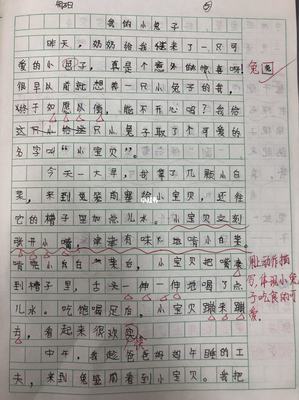 我的小兔子
昨天，奶奶给我买来了一只可
爱的小兔子，真是个意外的惊喜呀！
很早以前就想养一只小兔子的我，
终于如愿以偿，能不开心吗？我给
这只小兔子取了个可爱的
名字叫“小宝贝”。
今天一大早，我拿了几颗小白
菜，来到兔笼前喂给小宝贝，还往
它的槽子里加点儿水。小宝贝立刻
张开小嘴，津津有味地啃小白菜。
啃完小白菜后，小宝贝把嘴
到槽子里，舌头一伸一伸地喝了点
儿水。吃饱喝足后，小宝贝蹦来蹦
去，看起来很欢快
中午，我趁爸爸妈妈午睡的工
夫，来到兔笼前看到小宝贝。我把
兔
用动作描
写，体现小兔
子吃食的可
爱。